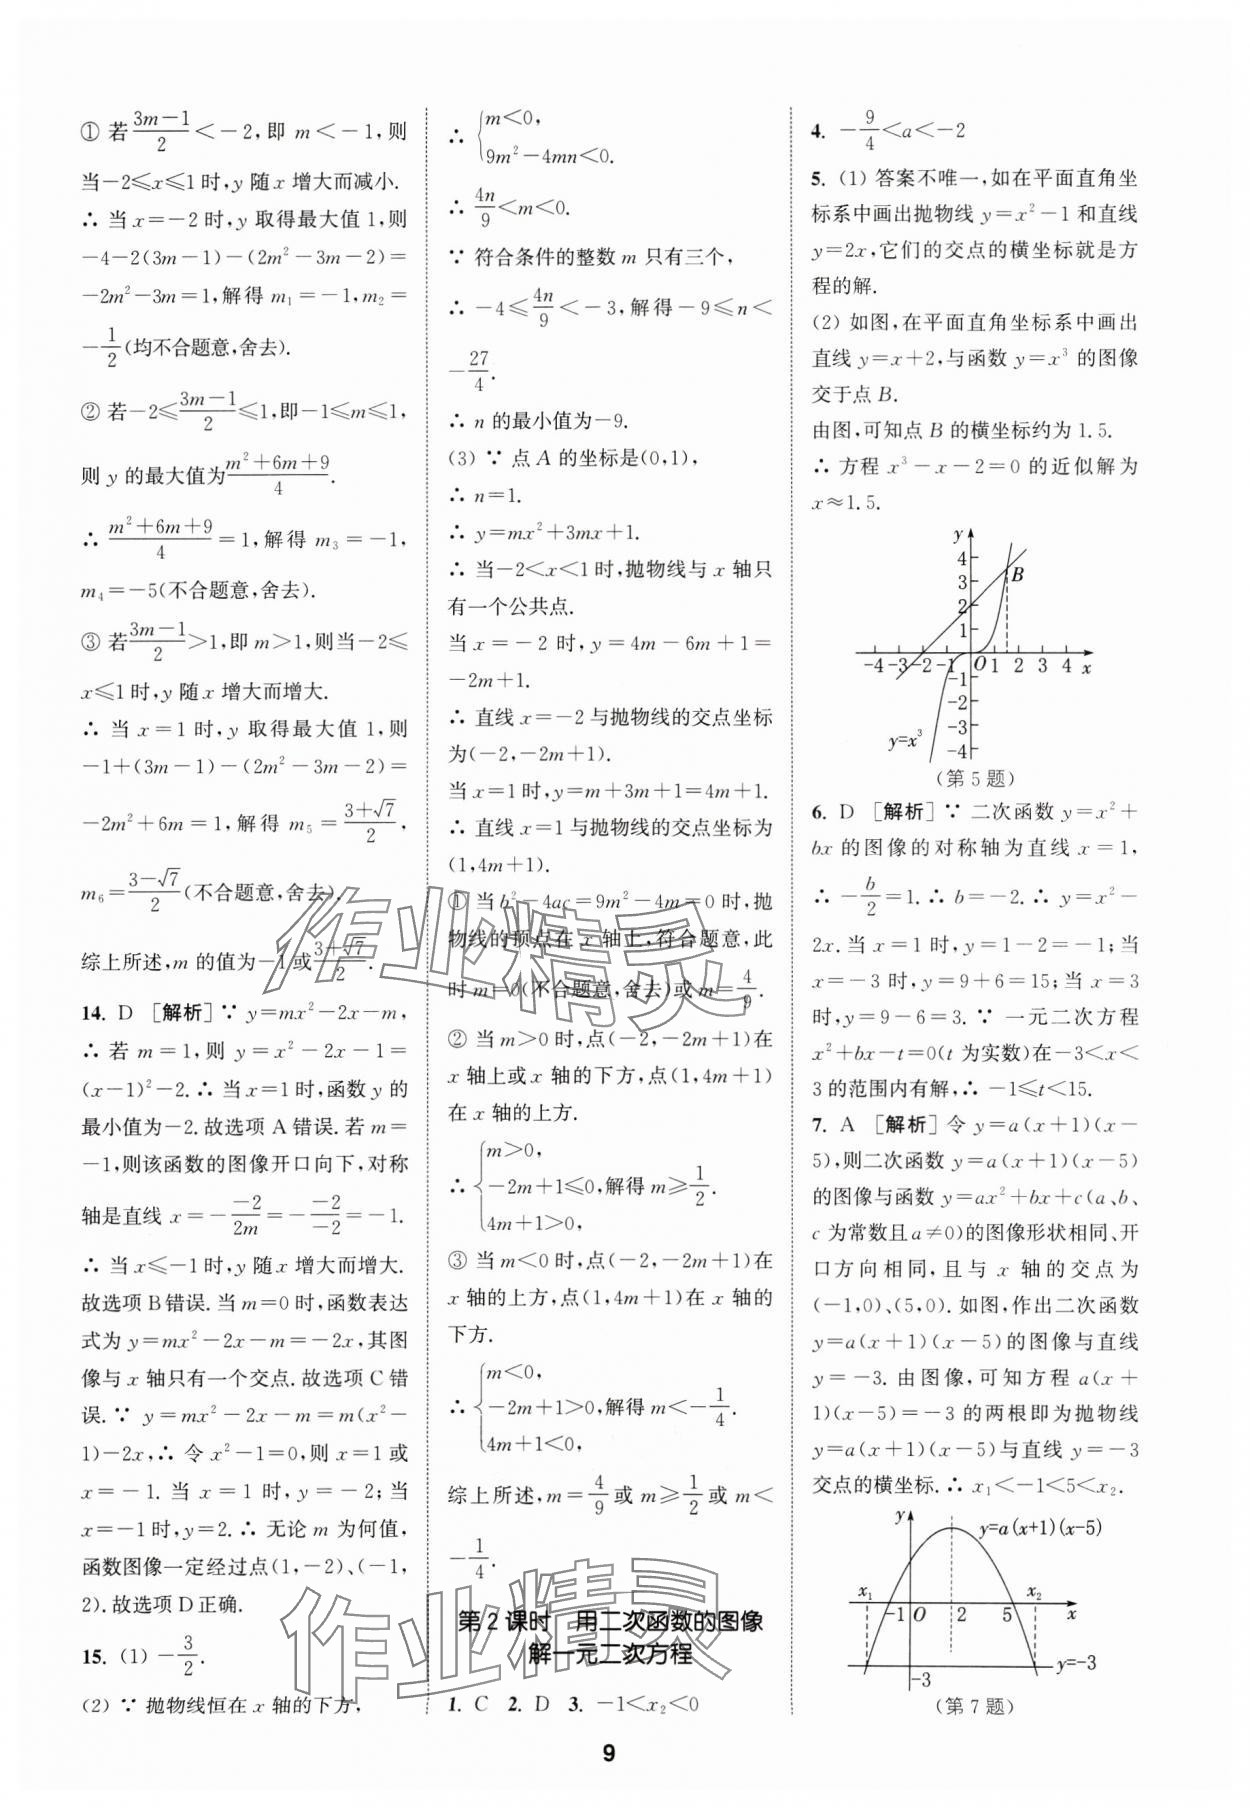 ① 若(3m−1)/2<−2,即 m<−1,则
当−2≤x≤1时,y 随x 增大而减小.
∴ 当 x=−2 时,y 取得最大值 1,则
−4−2(3m−1)−(2m²−3m−2)=
−2m²−3m=1,解得 m₁=−1,m₂=
−1/2(均不合题意,舍去).
② 若−2≤(3m−1)/2≤1,即−1≤m≤1,
则 y 的最大值为(m²+6m+9)/4.
∴ (m²+6m+9)/4=1,解得 m₃=−1,
m₄=−5(不合题意,舍去).
③ 若(3m−1)/2>1,即 m>1,则当−2≤
x≤1时,y随x 增大而增大.
∴ 当 x=1 时,y 取得最大值 1,则
−1+(3m−1)−(2m²−3m−2)=
−2m²+6m=1,解得 m₅=(3+√7)/2,
m₆=(3−√7)/2(不合题意,舍去).
综上所述,m 的值为−1或(3+√7)/2.
14. D [解析]∵ y=mx²−2x−m,
∴ 若 m=1,则 y=x²−2x−1=
(x−1)²−2.∴ 当x=1时,函数 y 的
最小值为−2.故选项 A 错误.若 m=
−1,则该函数的图像开口向下,对称
轴是直线 x=−(−2)/(2m)=−(−2)/(−2)=−1.
∴ 当 x≤−1时,y随x 增大而增大.
故选项B错误.当m=0时,函数表达
式为 y=mx²−2x−m=−2x,其图
像与x 轴只有一个交点.故选项C错
误.∵ y=mx²−2x−m=m(x²−
1)−2x,∴ 令 x²−1=0,则 x=1 或
x=−1. 当 x=1 时,y=−2;当
x=−1时,y=2.∴ 无论 m 为何值,
函数图像一定经过点(1,−2)、(−1,
2).故选项D正确.
15. (1) −3/2.
(2) ∵ 抛物线恒在 x 轴的下方,
∴ {m<0,
9m²−4mn<0.
∴ 4n/9<m<0.
∵ 符合条件的整数 m 只有三个,
∴ −4≤4n/9<−3,解得−9≤n<
−27/4.
∴ n 的最小值为−9.
(3) ∵ 点 A 的坐标是(0,1),
∴ n=1.
∴ y=mx²+3mx+1.
∴ 当−2<x<1时,抛物线与 x 轴只
有一个公共点.
当 x=−2 时,y=4m−6m+1=
−2m+1.
∴ 直线 x=−2与抛物线的交点坐标
为(−2,−2m+1).
当x=1时,y=m+3m+1=4m+1.
∴ 直线 x=1与抛物线的交点坐标为
(1,4m+1).
① 当 b²−4ac=9m²−4m=0时,抛
物线的顶点在 x 轴上,符合题意,此
时 m=0(不合题意,舍去)或 m=4/9.
② 当 m>0时,点(−2,−2m+1)在
x 轴上或x 轴的下方,点(1,4m+1)
在 x 轴的上方.
∴ {m>0,
−2m+1≤0,解得 m≥1/2.
4m+1>0,
③ 当 m<0 时,点(−2,−2m+1)在
x 轴的上方,点(1,4m+1)在 x 轴的
下方.
∴ {m<0,
−2m+1>0,解得 m<−1/4.
4m+1<0,
综上所述,m=4/9或 m≥1/2或 m<
−1/4.
第 2 课时 用二次函数的图像
解一元二次方程
1. C 2. D 3. −1<x₂<0
4. −9/4<a<−2
5. (1) 答案不唯一,如在平面直角坐
标系中画出抛物线 y=x²−1 和直线
y=2x,它们的交点的横坐标就是方
程的解.
(2) 如图,在平面直角坐标系中画出
直线 y=x+2,与函数 y=x³ 的图像
交于点 B.
由图,可知点 B 的横坐标约为 1.5.
∴ 方程 x³−x−2=0 的近似解为
x≈1.5.
y
4
3
2
1
B
−4 −3 −2 −1 O 1 2 3 4 x
−1
−2
−3
−4
y=x³
(第 5 题)
6. D [解析]∵ 二次函数 y=x²+
bx 的图像的对称轴为直线 x=1,
∴ −b/2=1.∴ b=−2.∴ y=x²−
2x.当 x=1 时,y=1−2=−1;当
x=−3 时,y=9+6=15;当 x=3
时,y=9−6=3.∵ 一元二次方程
x²+bx−t=0(t 为实数)在−3<x<
3的范围内有解,∴ −1≤t<15.
7. A [解析]令 y=a(x+1)(x−
5),则二次函数 y=a(x+1)(x−5)
的图像与函数 y=ax²+bx+c(a、b、
c 为常数且a≠0)的图像形状相同、开
口方向相同,且与 x 轴的交点为
(−1,0)、(5,0).如图,作出二次函数
y=a(x+1)(x−5)的图像与直线
y=−3. 由图像,可知方程 a(x+
1)(x−5)=−3 的两根即为抛物线
y=a(x+1)(x−5)与直线 y=−3
交点的横坐标.∴ x₁<−1<5<x₂.
y
y=a(x+1)(x−5)
x₁ x₂
−1 O 2 5 x
−3
y=−3
(第 7 题)
作业精灵
作业精灵
9